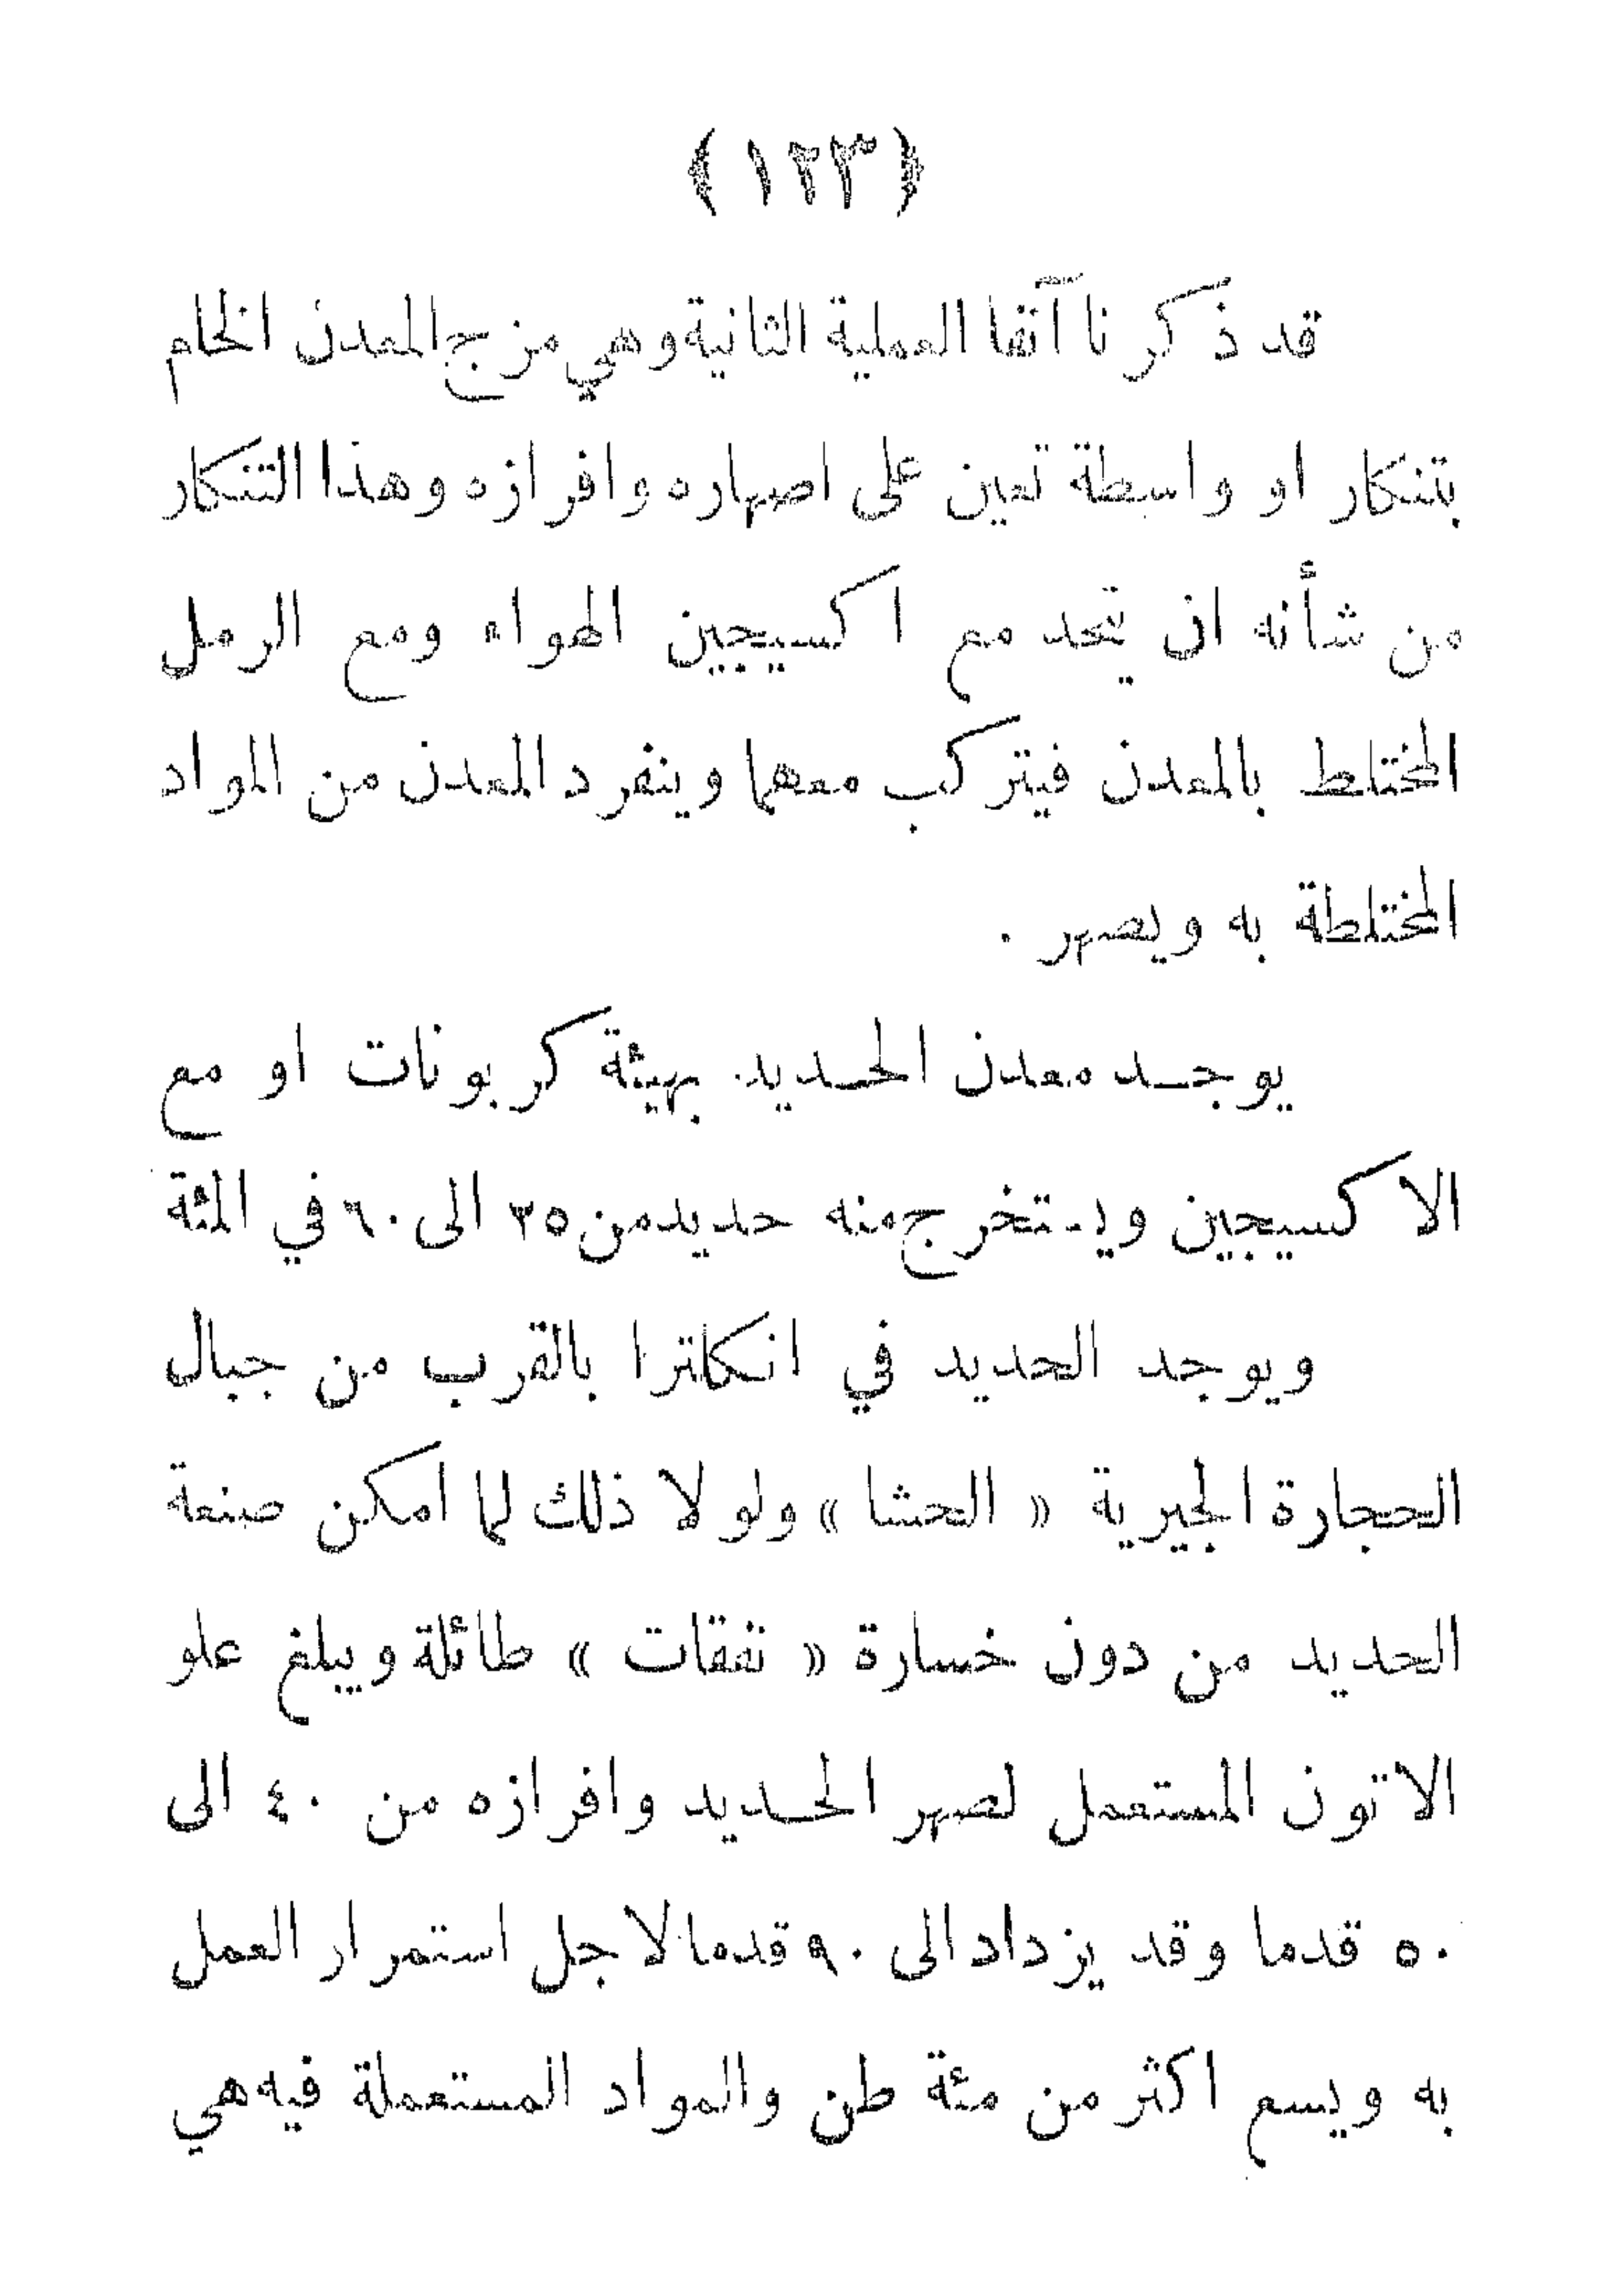 ﴿ ١٢٣ ﴾
قد ذكرنا آنفا العملية الثانية وهي مزج المعدن الخام
بتنكار او واسطة تعين على اصهاره وافرازه وهذا التنكار
من شأنه ان يتحد مع اكسيجين الهواء ومع الرمل
المختلط بالمعدن فيتركب معهما وينفرد المعدن من المواد
المختلطة به ويصهر .
يوجد معدن الحديد بهيئة كربونات او مع
الاكسيجين ويستخرج منه حديد من ٣٥ الى ٦٠ في المئة
ويوجد الحديد في انكلترا بالقرب من جبال
الحجارة الجيرية « الحثا » ولولا ذلك لما امكن صنعة
الحديد من دون خسارة « نفقات » طائلة ويبلغ علو
الاتون المستعمل لصهر الحديد وافرازه من ٤٠ الى
٥٠ قدما وقد يزداد الى ٩٠ قدما لاجل استمرار العمل
به ويسع اكثر من مئة طن والمواد المستعملة فيه هي